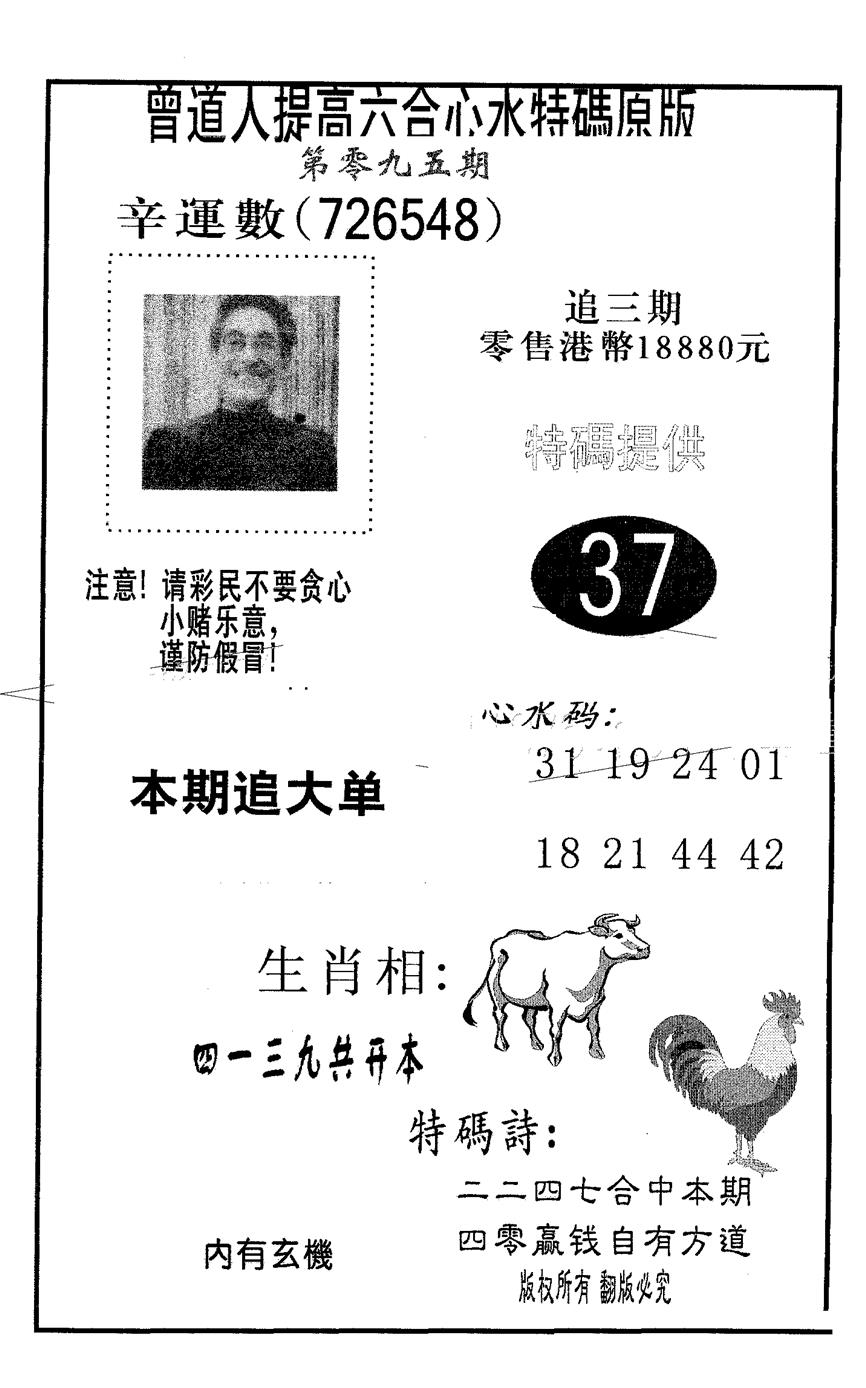 曾道人提高六合心水特碼原版
第零九五期
辛運數(726548)
追三期
零售港幣18880元
特碼提供
37
注意! 请彩民不要贪心
小赌乐意,
谨防假冒!
心水码:
31 19 24 01
本期追大单
18 21 44 42
生肖相:
四一三九共开本
特碼詩:
二二四七合中本期
四零赢钱自有方道
内有玄機
版权所有 翻版必究